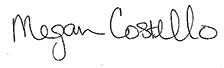 Megan Costello